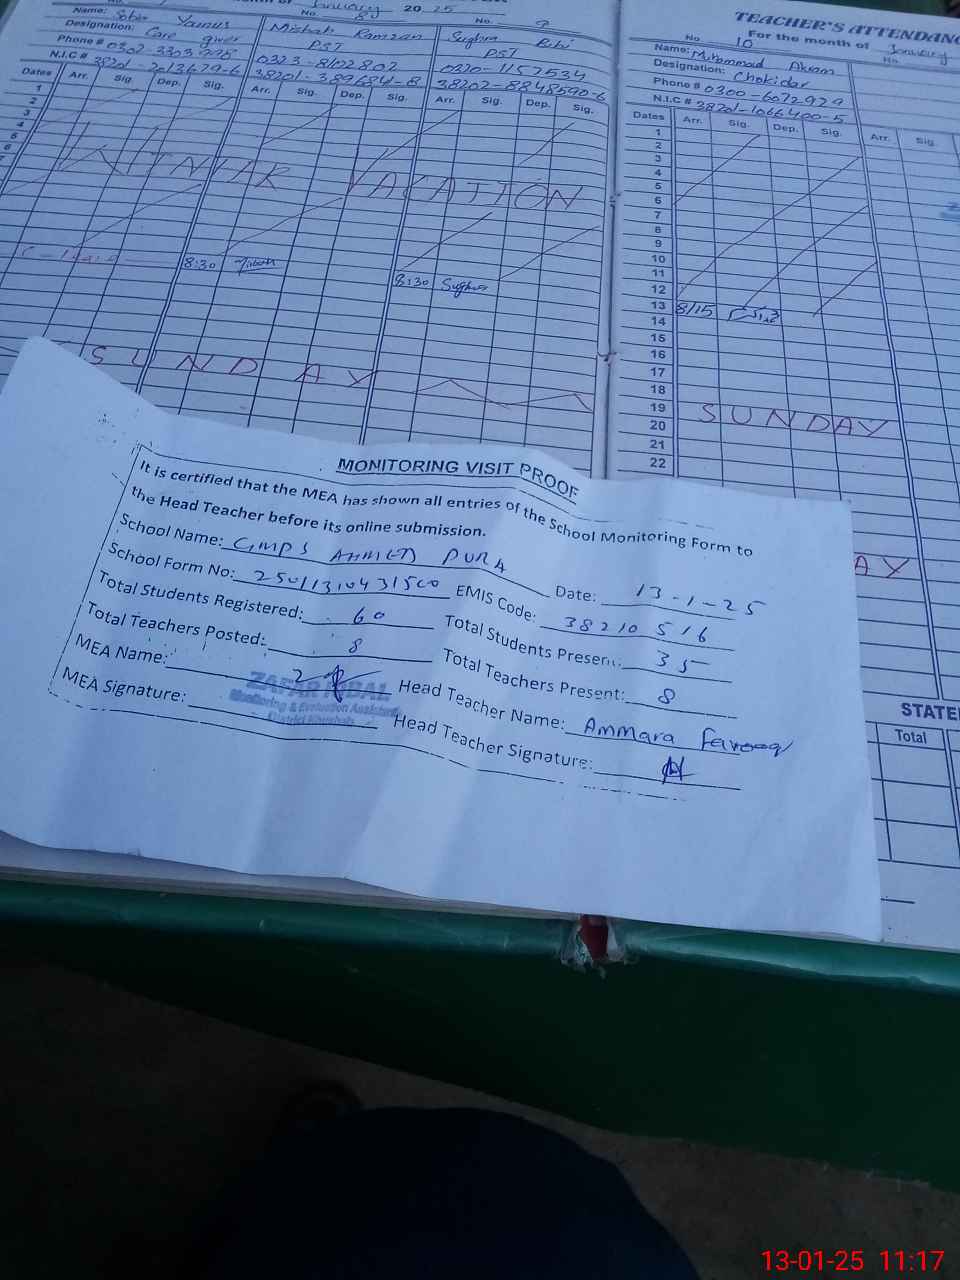 January 2025
No. 8
No. - 9
Name: Sobia Younus
Designation: Care giver
Phone # 0302-3303798
N.I.C #
Misbah Ramzan
PST
0323-8102802
38201-389684-8
Sughra Bibi
PST
0320-1157534
38202-8848590-6
Dates Arr. Sig. Dep. Sig. Arr. Sig. Dep. Sig. Arr. Sig. Dep. Sig.
1
2
3
4
5
6
7
WINTAR VACATION
8:30 Misbah
8:30 Sughra
SUNDAY
TEACHER'S ATTENDANC
No 10 For the month of January
Name: Muhammad Akram No.
Designation: Chokidar
Phone # 0300-6072929
N.I.C # 38201-1066400-5
Dates Arr. Sig. Dep. Sig. Arr. Sig.
1
2
3
4
5
6
7
8
9
10
11
12
13 8/15
14
15
16
17
18
19 SUNDAY
20
21
22
AY
STATE
Total
MONITORING VISIT PROOF
It is certified that the MEA has shown all entries of the School Monitoring Form to
the Head Teacher before its online submission.
School Name: GMPS AHMED PURA Date: 13-1-25
School Form No: 25011310431500 EMIS Code: 38210516
Total Students Registered: 60 Total Students Present: 35
Total Teachers Posted: 8 Total Teachers Present: 8
MEA Name: Head Teacher Name: Ammara Farooq
ZAFAR IQBAL
Monitoring & Evaluation Assistant
District Khushab
MEA Signature: Head Teacher Signature:
13-01-25 11:17